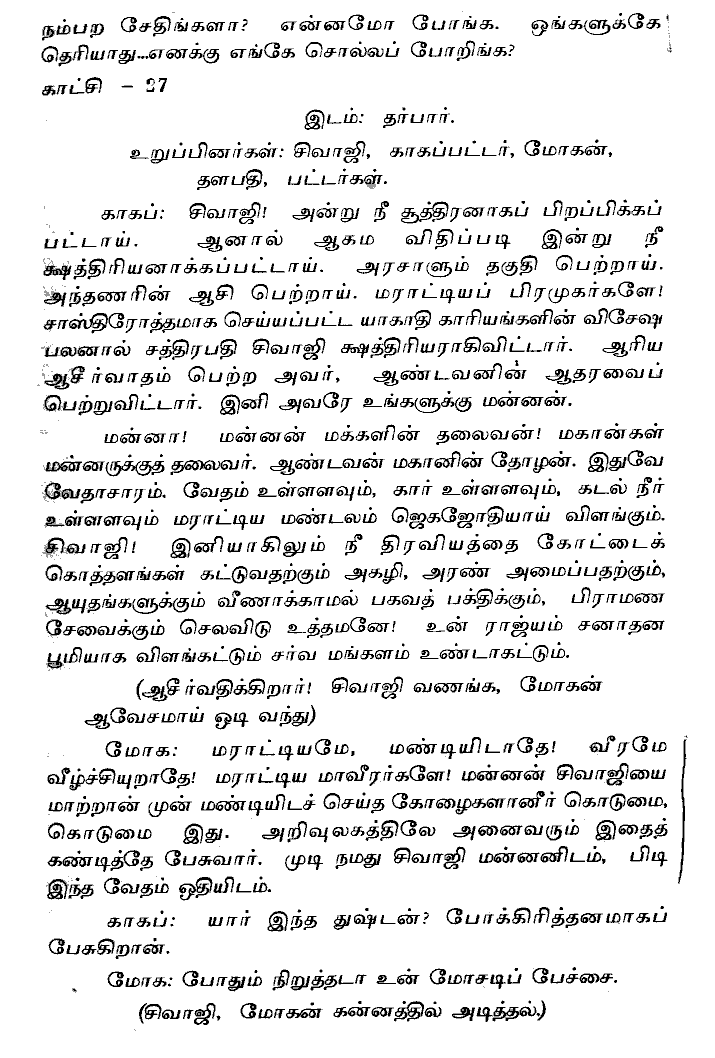 நம்பற சேதிங்களா? என்னமோ போங்க. ஒங்களுக்கே
தெரியாது...எனக்கு எங்கே சொல்லப் போறிங்க?
காட்சி - 27
இடம்: தர்பார்.
உறுப்பினர்கள்: சிவாஜி, காகப்பட்டர், மோகன்,
தளபதி, பட்டர்கள்.
காகப்: சிவாஜி! அன்று நீ சூத்திரனாகப் பிறப்பிக்கப்
பட்டாய். ஆனால் ஆகம விதிப்படி இன்று நீ
க்ஷத்திரியனாக்கப்பட்டாய். அரசாளும் தகுதி பெற்றாய்.
அந்தணரின் ஆசி பெற்றாய். மராட்டியப் பிரமுகர்களே!
சாஸ்திரோத்தமாக செய்யப்பட்ட யாகாதி காரியங்களின் விசேஷ
பலனால் சத்திரபதி சிவாஜி க்ஷத்திரியராகிவிட்டார். ஆரிய
ஆசீர்வாதம் பெற்ற அவர், ஆண்டவனின் ஆதரவைப்
பெற்றுவிட்டார். இனி அவரே உங்களுக்கு மன்னன்.
மன்னா! மன்னன் மக்களின் தலைவன்! மகான்கள்
மன்னருக்குத் தலைவர். ஆண்டவன் மகானின் தோழன். இதுவே
வேதாசாரம். வேதம் உள்ளளவும், கார் உள்ளளவும், கடல் நீர்
உள்ளளவும் மராட்டிய மண்டலம் ஜெகஜோதியாய் விளங்கும்.
சிவாஜி! இனியாகிலும் நீ திரவியத்தை கோட்டைக்
கொத்தளங்கள் கட்டுவதற்கும் அகழி, அரண் அமைப்பதற்கும்,
ஆயுதங்களுக்கும் வீணாக்காமல் பகவத் பக்திக்கும், பிராமண
சேவைக்கும் செலவிடு உத்தமனே! உன் ராஜ்யம் சனாதன
பூமியாக விளங்கட்டும் சர்வ மங்களம் உண்டாகட்டும்.
(ஆசீர்வதிக்கிறார்! சிவாஜி வணங்க, மோகன்
ஆவேசமாய் ஒடி வந்து)
மோக: மராட்டியமே, மண்டியிடாதே! வீரமே
வீழ்ச்சியுறாதே! மராட்டிய மாவீரர்களே! மன்னன் சிவாஜியை
மாற்றான் முன் மண்டியிடச் செய்த கோழைகளானீர் கொடுமை,
கொடுமை இது. அறிவுலகத்திலே அனைவரும் இதைத்
கண்டித்தே பேசுவார். முடி நமது சிவாஜி மன்னனிடம், பிடி
இந்த வேதம் ஒதியிடம்.
காகப்: யார் இந்த துஷ்டன்? போக்கிரித்தனமாகப்
பேசுகிறான்.
மோக: போதும் நிறுத்தடா உன் மோசடிப் பேச்சை.
(சிவாஜி, மோகன் கன்னத்தில் அடித்தல்.)